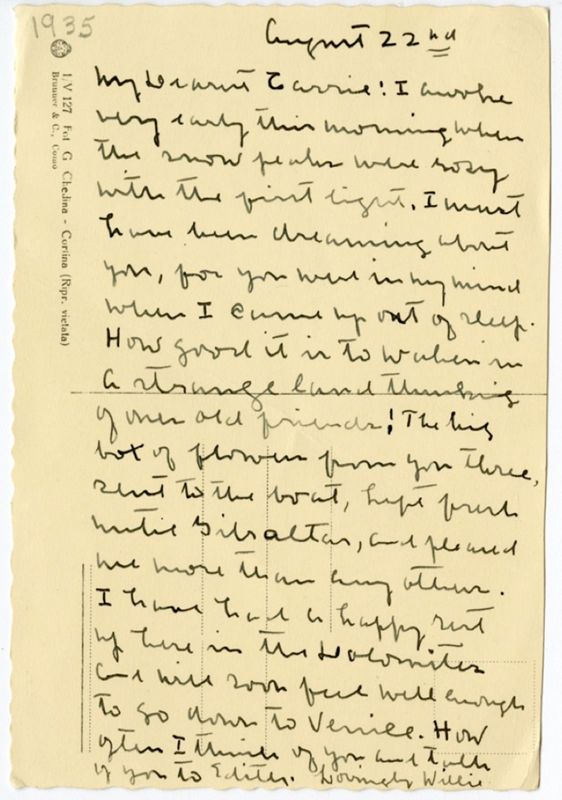 1935
August 22nd
My Dearest Carrie! I awoke
very early this morning when
the snow peaks were rosy
with the first light. I must
have been dreaming about
you, for you went in my mind
when I came up out of sleep.
How good it is to waken in
a strange land thinking
of ones old friends! The big
box of flowers from you three,
sent to the boat, kept fresh
until Gibraltar, and pleased
me more than any others.
I have had a happy rest
up here in the Dolomites
and will soon feel well enough
to go down to Venice. How
often I think of you and talk
of you to Edith. Lovingly Willie
1/V 127 Fot G Ghedina - Cortina (Ripr. vietata)
Brunner & C., Como